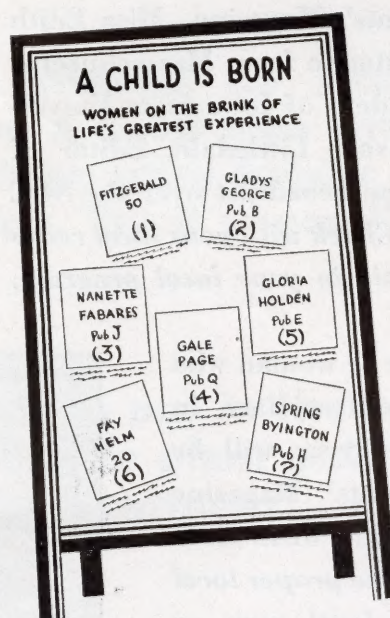 A CHILD IS BORN
WOMEN ON THE BRINK OF
LIFE'S GREATEST EXPERIENCE
FITZGERALD
50
(1)
GLADYS
GEORGE
Pub B
(2)
NANETTE
FABARES
Pub J
(3)
GALE
PAGE
Pub Q
(4)
GLORIA
HOLDEN
Pub E
(5)
FAY
HELM
20
(6)
SPRING
BYINGTON
Pub H
(7)